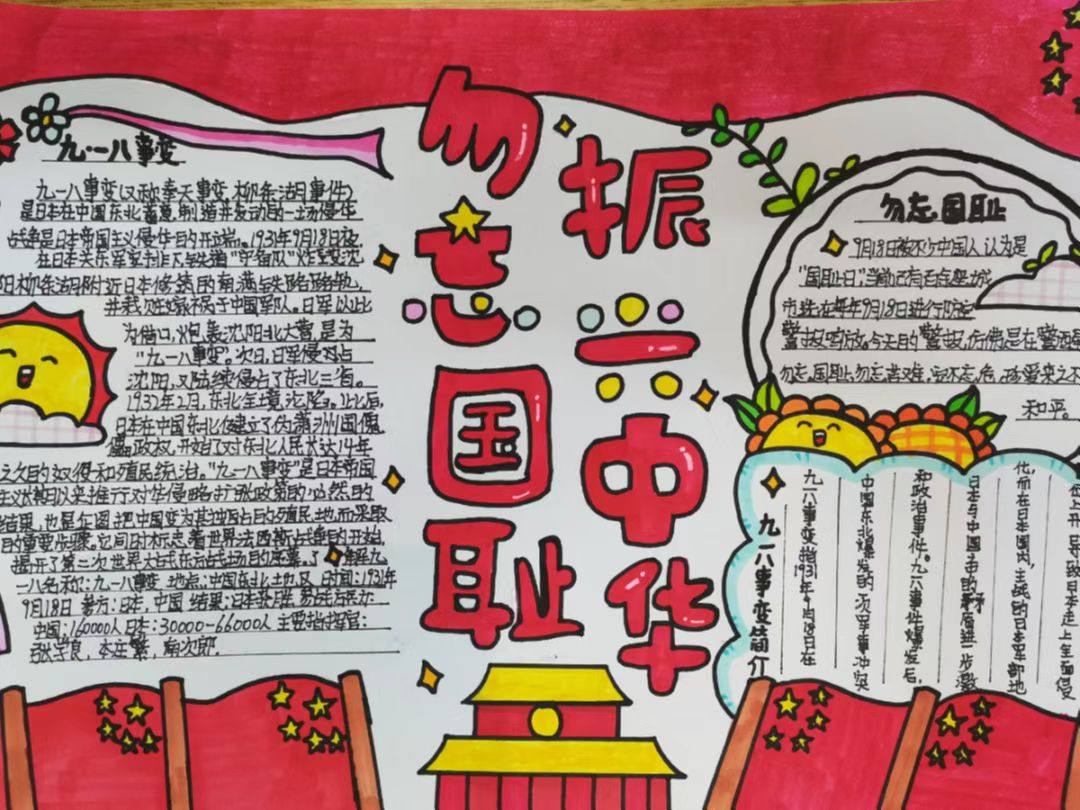 勿忘国耻
振兴中华
九·一八事变
九一八事变(又称奉天事变、柳条湖事件)
是日本在中国东北蓄意制造并发动的一场侵华
战争是日本帝国主义侵华的开端。1931年9月18日夜,
在日本关东军安排下,铁道"守备队"炸毁沈
阳柳条湖附近日本修筑的南满铁路路轨,
并栽赃嫁祸于中国军队。日军以此
为借口,炮轰沈阳北大营,是为
"九一八事变"。次日,日军侵占
沈阳,又陆续侵占了东北三省。
1932年2月,东北全境沦陷。此后,
日本在中国东北建立了伪满洲国傀
儡政权,开始了对东北人民长达14年
之久的奴役和殖民统治。"九一八事变"是日本帝国
主义长期以来推行对华侵略扩张政策的必然的
结果,也是企图把中国变为其独占的殖民地而采取
的重要步骤。它同时标志着世界法西斯战争的开始,
揭开了第二次世界大战东方战场的序幕。了解九
一八名称:九一八事变 地点:中国东北土地 时间:1931年
9月18日 参方:日本,中国 结果:日本获胜
中国:160000人 日本:30000-66000人 主要指挥官:
张学良,本庄繁,南次郎
勿忘国耻
9月18日被不少中国人认为是
"国耻日",当前已有百座城
市选在每年9月18日进行防空
警报鸣放。今天的警报,仿佛是在警
勿忘国耻,勿忘苦难,安不忘危,珍爱来之不
和平。
九一八事变简介
九一八事变指1931年9月18日在
中国东北爆发的一次军事冲突
和政治事件。九一八事件爆发后,
日本与中国之间的矛盾进一步激
化,而在日本国内,主战的日本军部地
位上升,导致日本走上全面侵